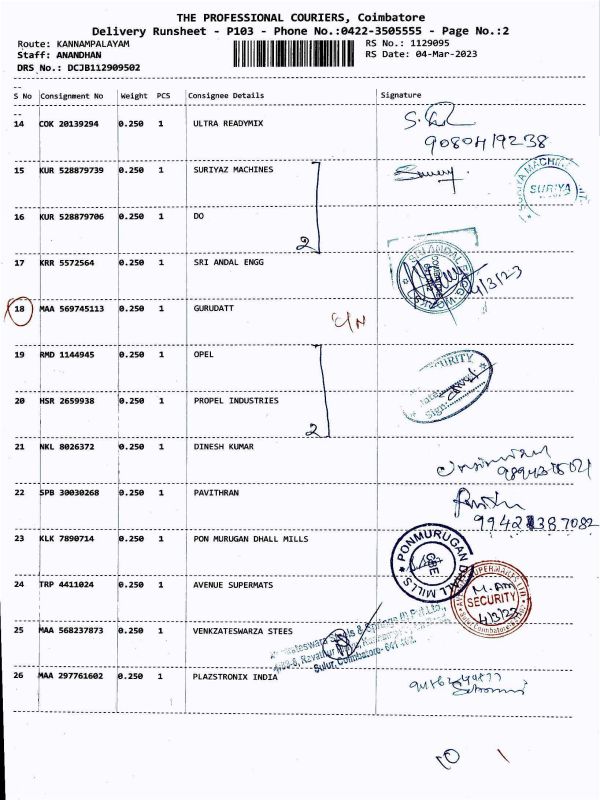 THE PROFESSIONAL COURIERS, Coimbatore
Delivery Runsheet - P103 - Phone No.:0422-3505555 - Page No.:2
Route: KANNAMPALAYAM
RS No.: 1129095
Staff: ANANDHAN
RS Date: 04-Mar-2023
DRS No.: DCJB112909502
S No Consignment No Weight PCS Consignee Details Signature
14 COK 20139294 0.250 1 ULTRA READYMIX
15 KUR 528879739 0.250 1 SURIYAZ MACHINES
SURIYA
16 KUR 528879706 0.250 1 DO
2
17 KRR 5572564 0.250 1 SRI ANDAL ENGG
4/3/23
18 MAA 569745113 0.250 1 GURUDATT
19 RMD 1144945 0.250 1 OPEL
SECURITY
Sign:
20 HSR 2659938 0.250 1 PROPEL INDUSTRIES
2
21 NKL 8026372 0.250 1 DINESH KUMAR
22 SPB 30030268 0.250 1 PAVITHRAN
23 KLK 7890714 0.250 1 PON MURUGAN DHALL MILLS
PONMURUGAN DHALL MILLS
CBE
24 TRP 4411024 0.250 1 AVENUE SUPERMATS
SECURITY
4/3/23
25 MAA 568237873 0.250 1 VENKZATESWARZA STEES
Sulur, Coimbatore- 641 402.
26 MAA 297761602 0.250 1 PLAZSTRONIX INDIA
10